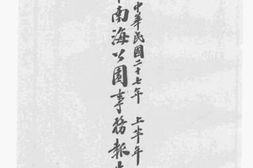 中華民國二十七年 上半年
南海公園事務報